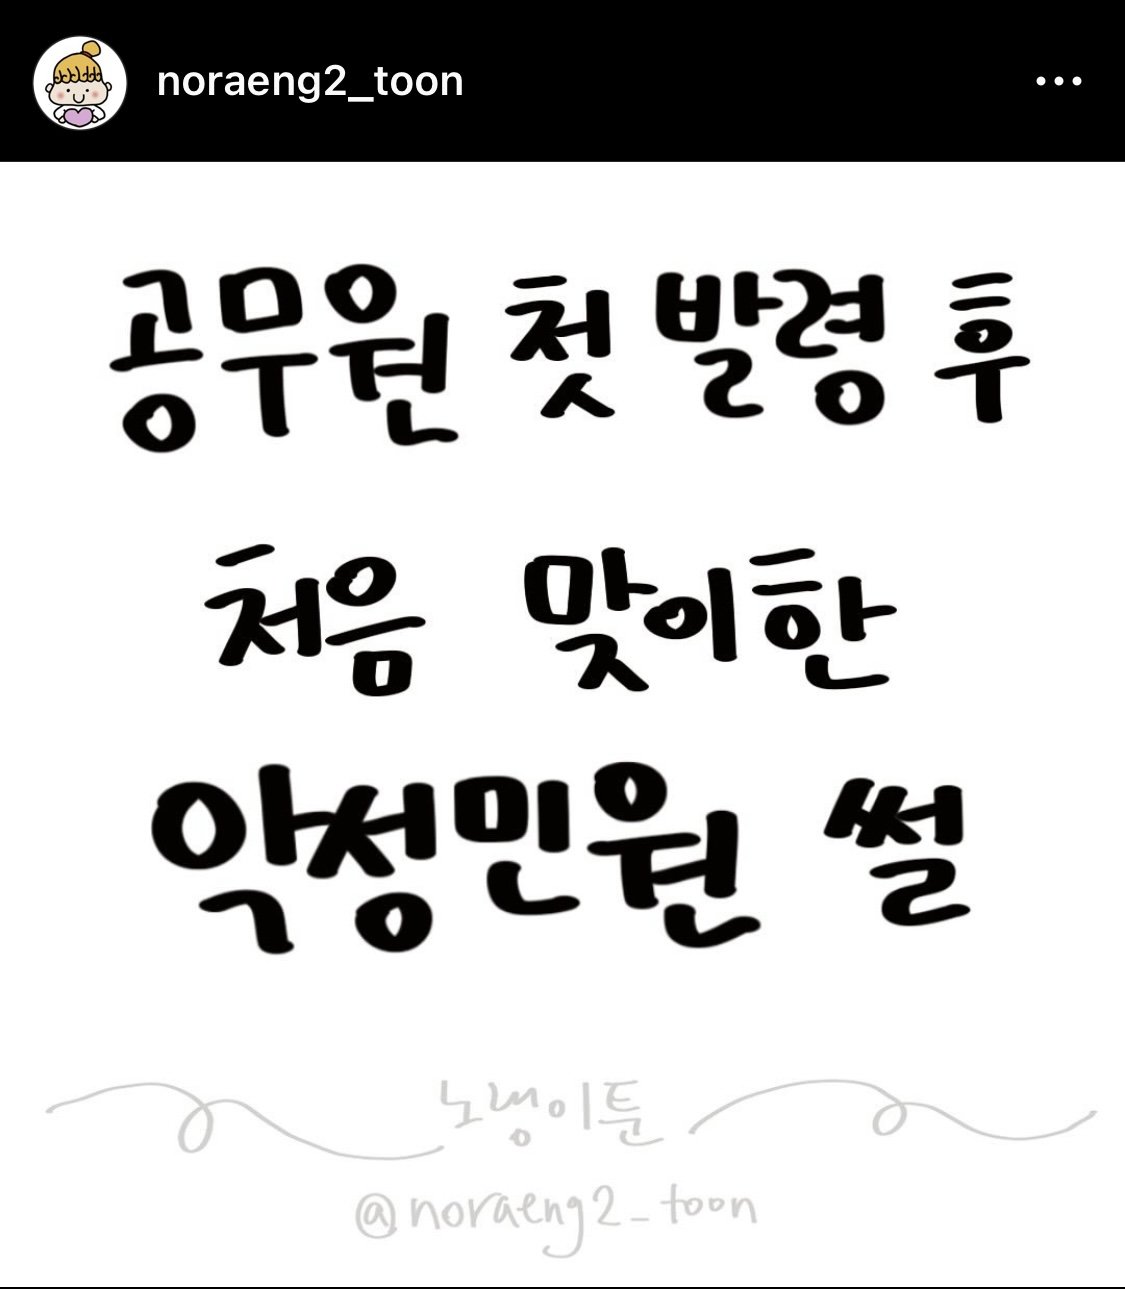 noraeng2_toon
공무원 첫 발령 후
처음 맞이한
악성민원 썰
노랭이툰
@noraeng2_toon